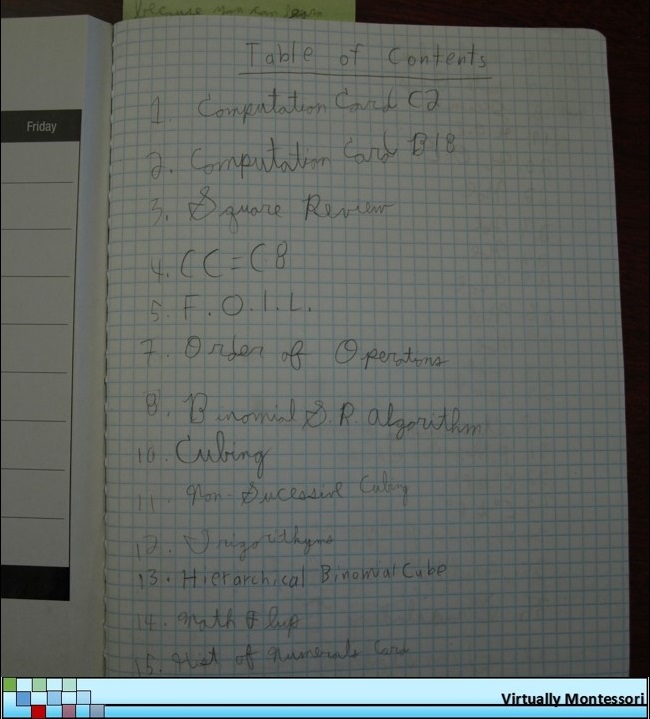 because you can learn
Table of Contents
Friday
1. Computation Card C2
2. Computation Card B18
3. Square Review
4. CC = C8
5. F.O.I.L.
7. Order of Operations
8. Binomial S.R. Algorithm
10. Cubing
11. Non-Sucessive Cubing
12.
13. Hierarchical Binomial Cube
14. Math Flip
15. of Numerals Card
Virtually Montessori